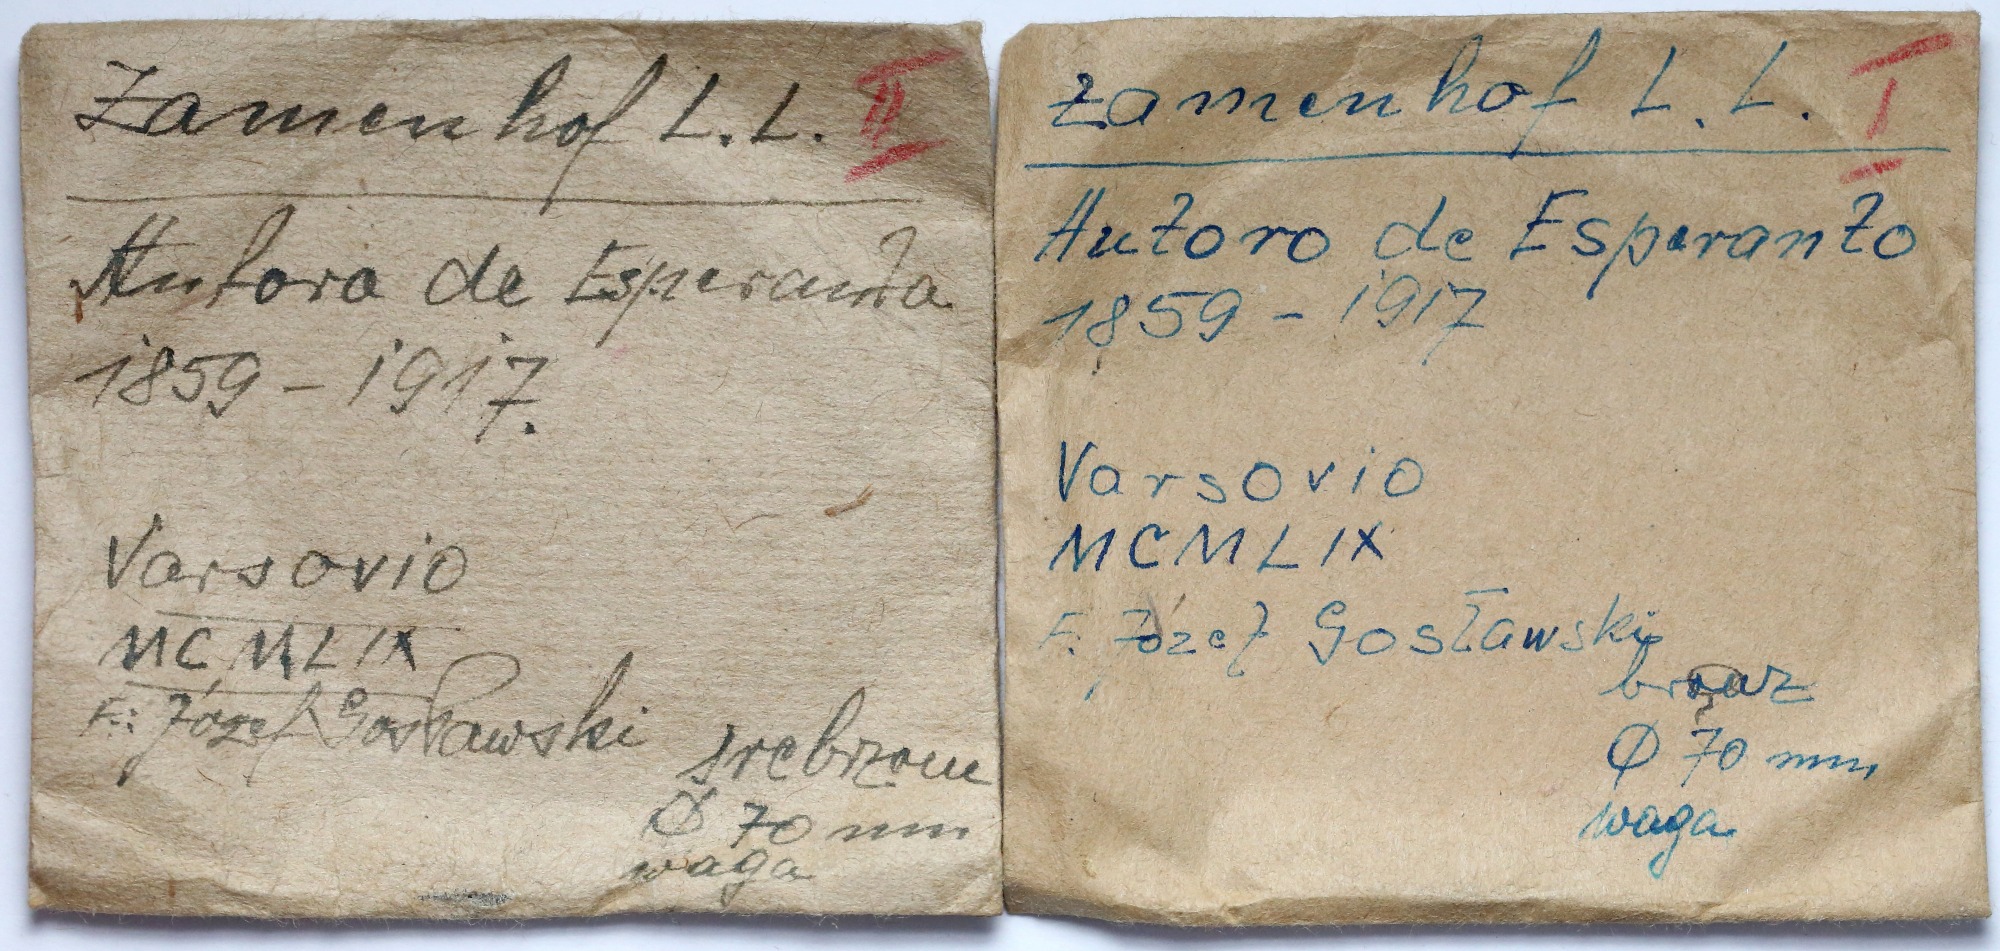 Zamenhof L.L. II
Autoro de Esperanto
1859 - 1917.
Varsovio
MCMLIX
F: Józef Gosławski
srebrzone
Ø 70 mm
waga
Zamenhof L. L. I
Autoro de Esperanto
1859 - 1917
Varsovio
MCMLIX
F. Józef Gosławski
brąz
Ø 70 mm
waga